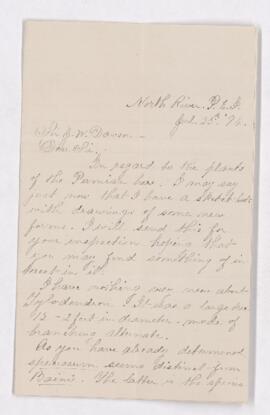 North River, P.E.I.
25th
Sir J. W. Dawson
Dear Sir,
In regard to the plants
of the Permian here. I may say
just now that I have a sketch book
with drawings of some new
forms. I will send this for
your inspection hoping that
you may find something of in
terest in it.
I have nothing new about
Tylodendron. It has a large
1½ - 2 feet in diameter. mode of
branching alternate.
As you have already determined
seems distinct from
Baini. The latter is the